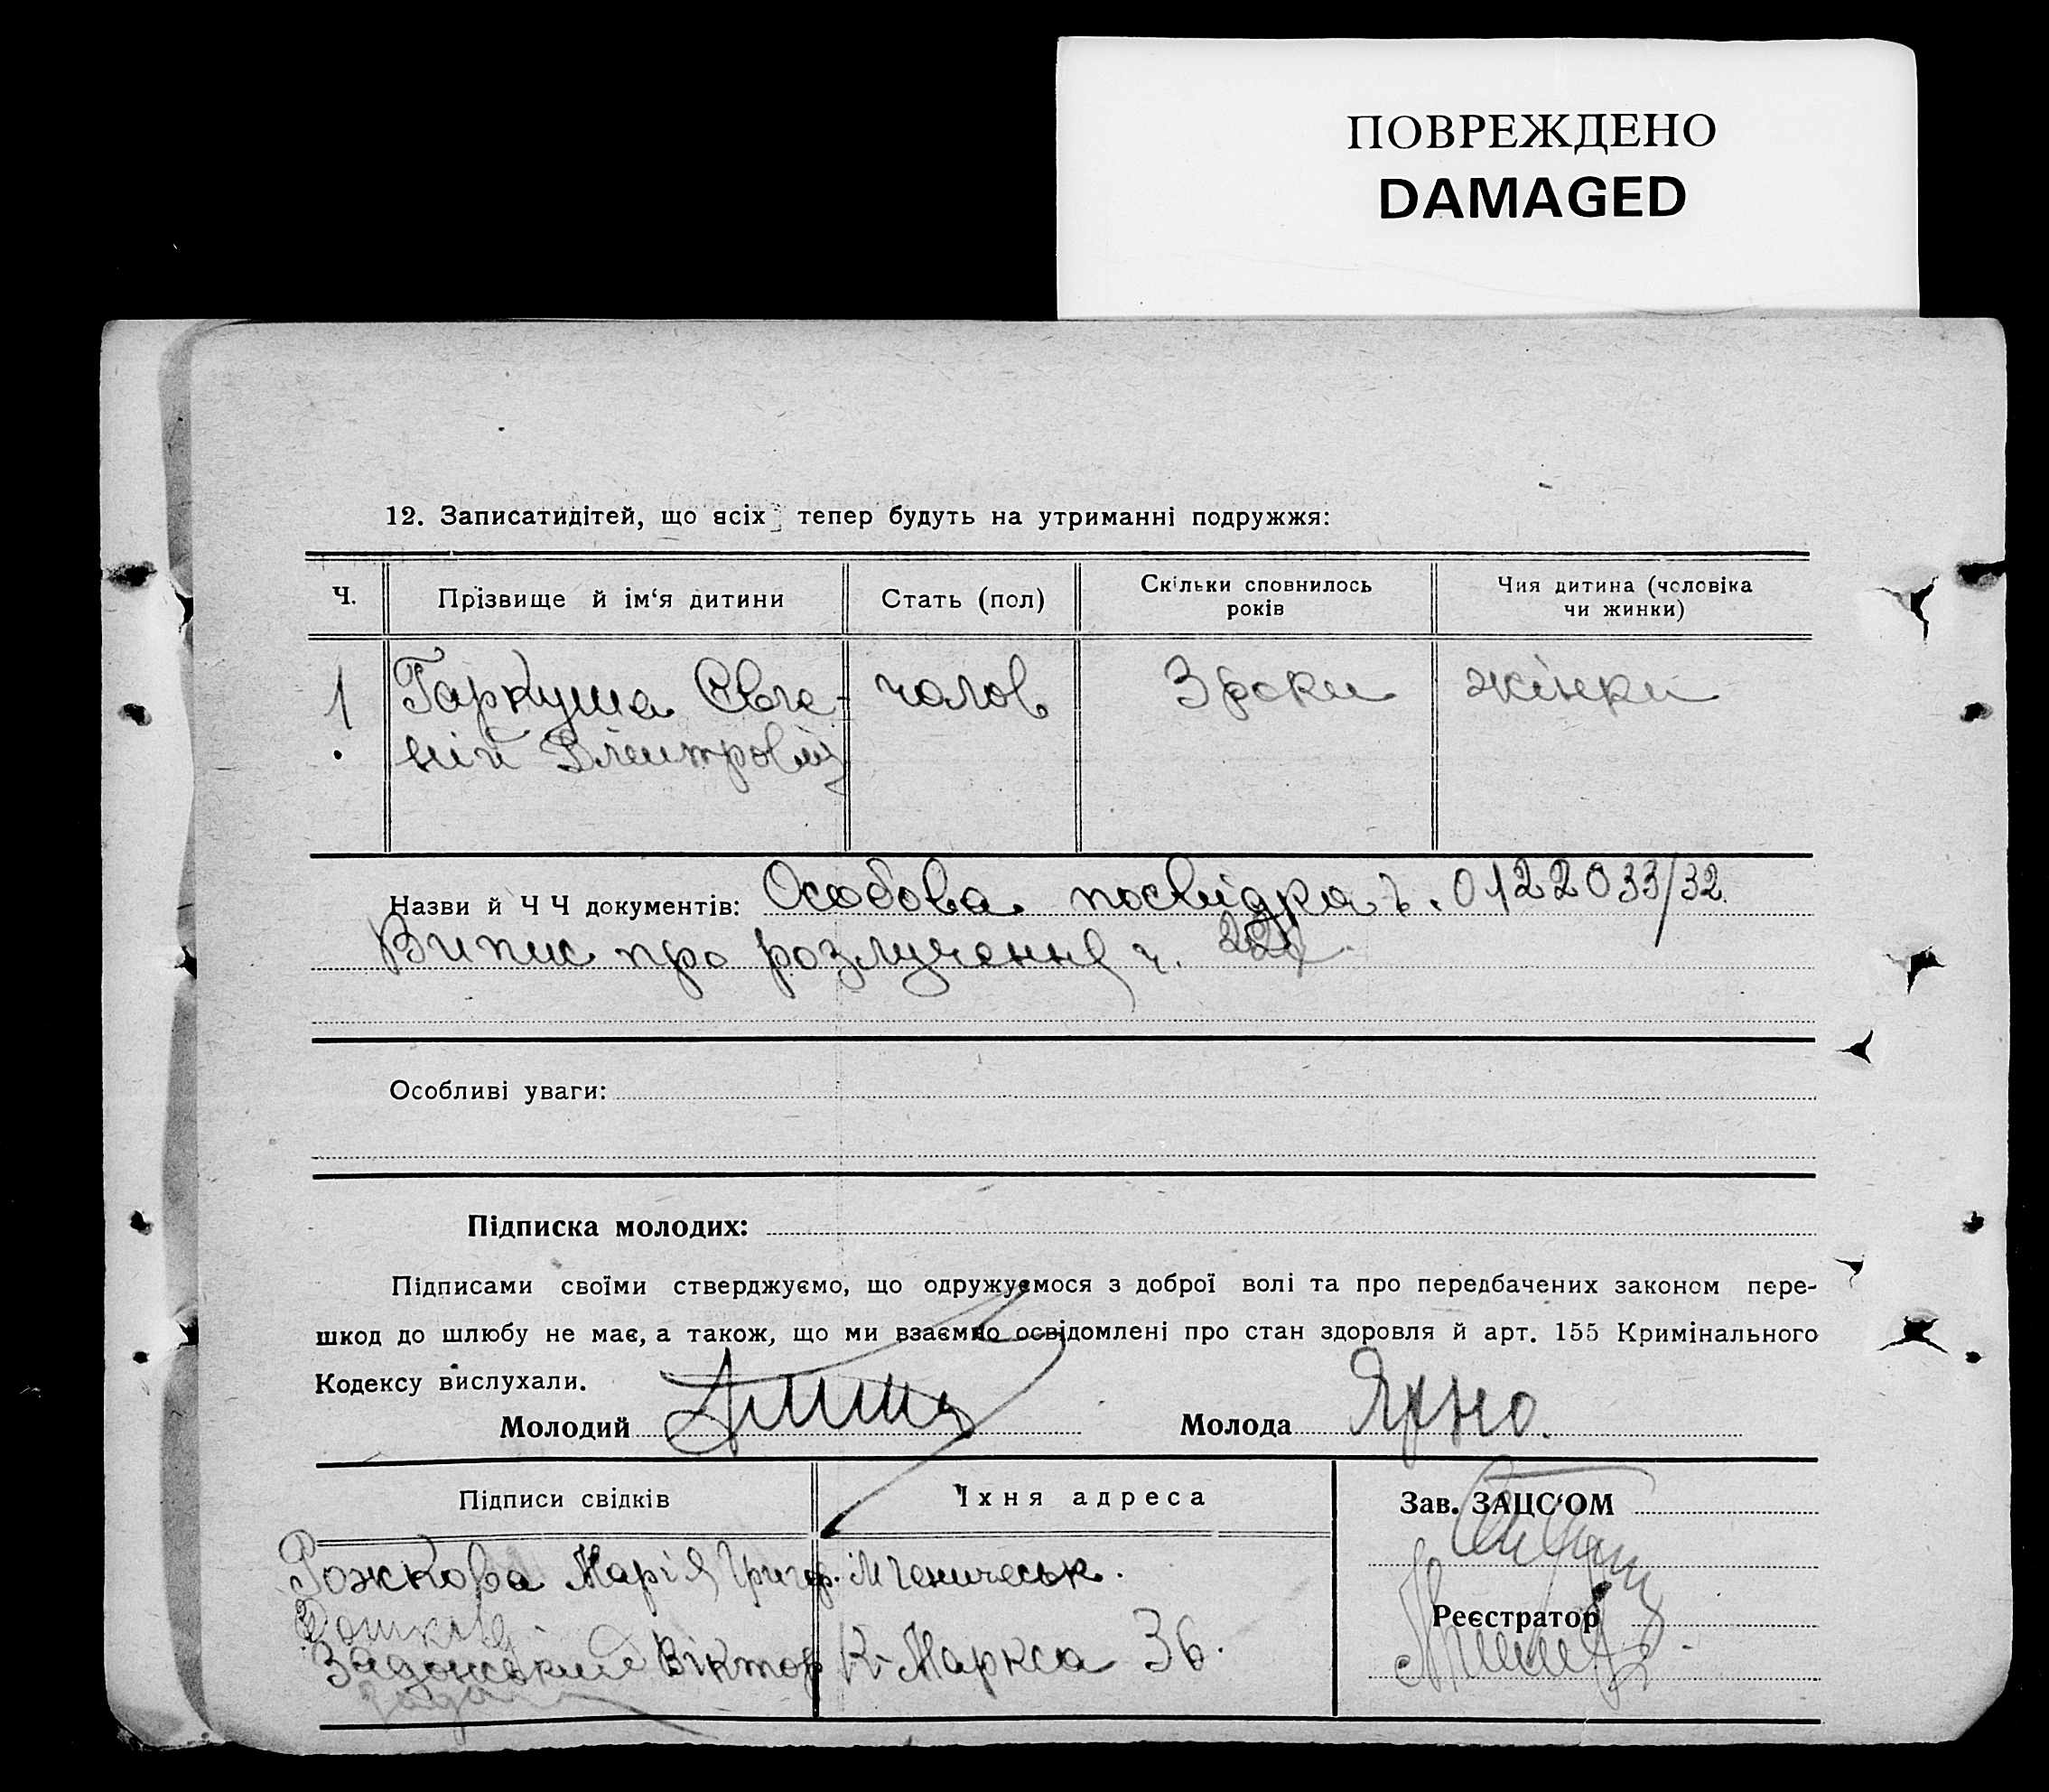 ПОВРЕЖДЕНО
DAMAGED
12. Записатидітей, що всіх тепер будуть на утриманні подружжя:
Ч.
Прізвище й ім‘я дитини
Стать (пол)
Скільки сповнилось
років
Чия дитина (чоловіка
чи жинки)
1 Гаркуша Євге- чолов 3 роки жінки
ній Дмитрович
Назви й ЧЧ документів: Особова посвідка ч. 0122033/32
Випис про розлучення ч.
Особливі уваги:
Підписка молодих:
Підписами своїми стверджуємо, що одружуємося з доброї волі та про передбачених законом пере-
шкод до шлюбу не має, а також, що ми взаємно освідомлені про стан здоровля й арт. 155 Кримінального
Кодексу вислухали.
Молодий
Молода
Підписи свідків
Їхня адреса
Зав. ЗАЦС‘ОМ
Рожкова Марія Григор. м Геничеськ.
Реєстратор
Задонський Віктор К-Маркса 36.